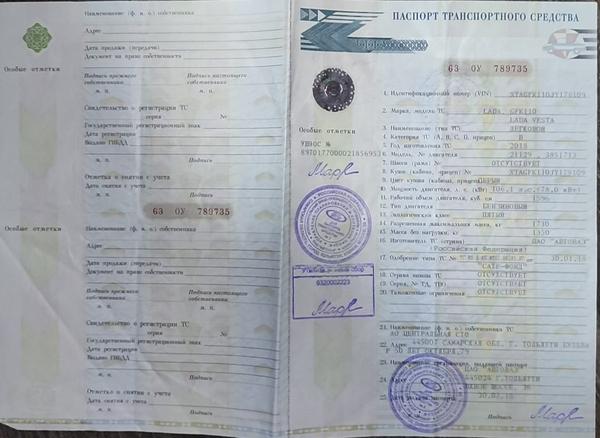 Наименование (ф. и. о.) собственника
Адрес
Дата продажи (передачи)
Документ на право собственности
Особые отметки
Подпись прежнего собственника
Подпись настоящего собственника
М. П.
М. П.
Свидетельство о регистрации ТС
серия №
Государственный регистрационный знак
Дата регистрации
Выдано ГИБДД
М. П.
Подпись
Отметка о снятии с учета
Дата снятия с учета
М. П.
Подпись
63 ОУ 789735
Наименование (ф. и. о.) собственника
Особые отметки
Адрес
Дата продажи (передачи)
Документ на право собственности
Подпись прежнего собственника
Подпись настоящего собственника
М. П.
М. П.
Свидетельство о регистрации ТС
серия №
Государственный регистрационный знак
Дата регистрации
Выдано ГИБДД
М. П.
Подпись
Отметка о снятии с учета
Дата снятия с учета
М. П.
Подпись
ПАСПОРТ ТРАНСПОРТНОГО СРЕДСТВА
63 ОУ 789735
Особые отметки
1. Идентификационный номер (VIN)
2. Марка, модель ТС LADA GFK110
LADA VESTA
3. Наименование (тип ТС) ЛЕГКОВОЙ
4. Категория ТС (А, В, С, D, прицеп) В
5. Год изготовления ТС 2018
6. Модель, № двигателя 21129
7. Шасси (рама) № ОТСУТСТВУЕТ
8. Кузов (кабина, прицеп) №
9. Цвет кузова (кабины, прицепа)
10. Мощность двигателя, л. с. (кВт) 106,1 л.с. (78,0 кВт)
11. Рабочий объем двигателя, куб. см 1596
12. Тип двигателя БЕНЗИНОВЫЙ
13. Экологический класс ПЯТЫЙ
14. Разрешенная максимальная масса, кг 1730
15. Масса без нагрузки, кг 1350
16. Изготовитель ТС (страна) ПАО "АВТОВАЗ"
(Российская Федерация)
17. Одобрение типа ТС №
"САТР-ФОНД"
18. Страна вывоза ТС ОТСУТСТВУЕТ
19. Серия, № ТД, ТПО ОТСУТСТВУЕТ
20. Таможенные ограничения ОТСУТСТВУЕТ
21. Наименование (ф. и. о.) собственника ТС
АО ЦЕНТРАЛЬНАЯ СТО
22. Адрес 445007 САМАРСКАЯ ОБЛ, Г. ТОЛЬЯТТИ
Р 50 ЛЕТ ОКТЯБРЯ,79
23. Наименование организации, выдавшей паспорт
ПАО "АВТОВАЗ"
24. Адрес 445024 Г.ТОЛЬЯТТИ
25. Дата выдачи паспорта
М. П.
Подпись